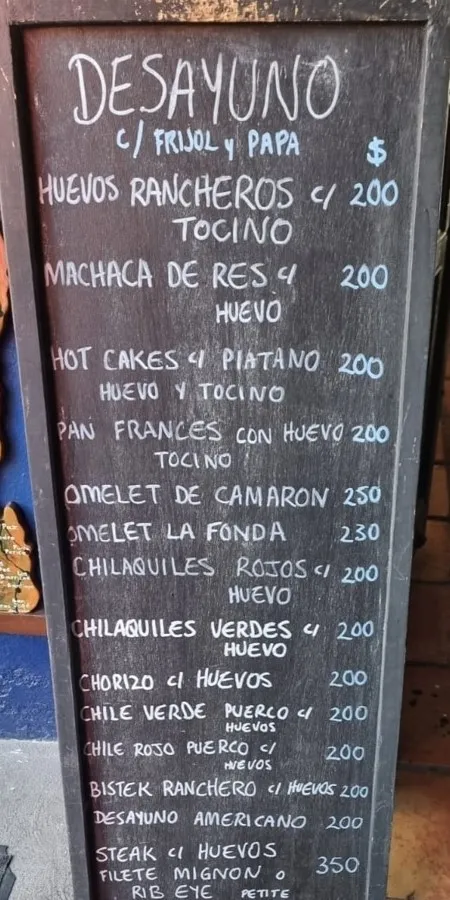 DESAYUNO
c/ FRIJOL y PAPA
$
HUEVOS RANCHEROS c/ 200
TOCINO
MACHACA DE RES c/ 200
HUEVO
HOT CAKES c/ PLATANO 200
HUEVO Y TOCINO
PAN FRANCES CON HUEVO 200
TOCINO
OMELET DE CAMARON 250
OMELET LA FONDA 230
CHILAQUILES ROJOS c/ 200
HUEVO
CHILAQUILES VERDES c/ 200
HUEVO
CHORIZO c/ HUEVOS 200
CHILE VERDE PUERCO c/ 200
HUEVOS
CHILE ROJO PUERCO c/ 200
HUEVOS
BISTEK RANCHERO c/ HUEVOS 200
DESAYUNO AMERICANO 200
STEAK c/ HUEVOS 350
FILETE MIGNON o
RIB EYE PETITE